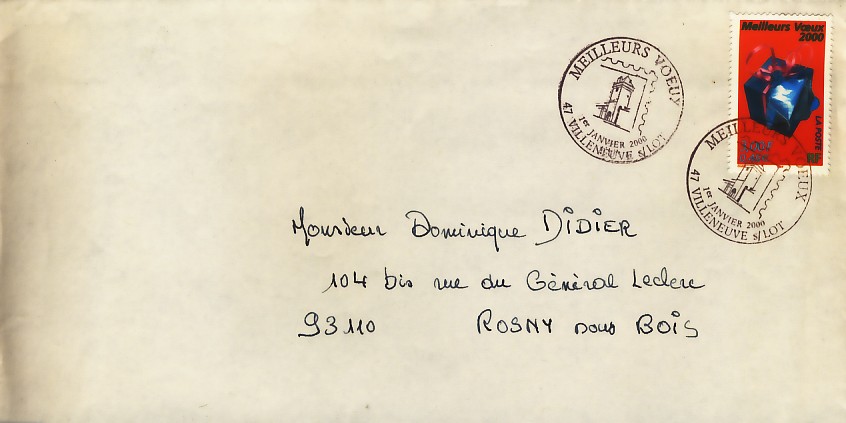 Meilleurs Vœux
2000
LA POSTE
MEILLEURS VOEUX
1er JANVIER 2000
47 VILLENEUVE S/LOT
MEILLEURS VOEUX
1er JANVIER 2000
47 VILLENEUVE S/LOT
Monsieur Dominique DIDIER
104 bis rue du Général Leclerc
93110 ROSNY sous BOIS